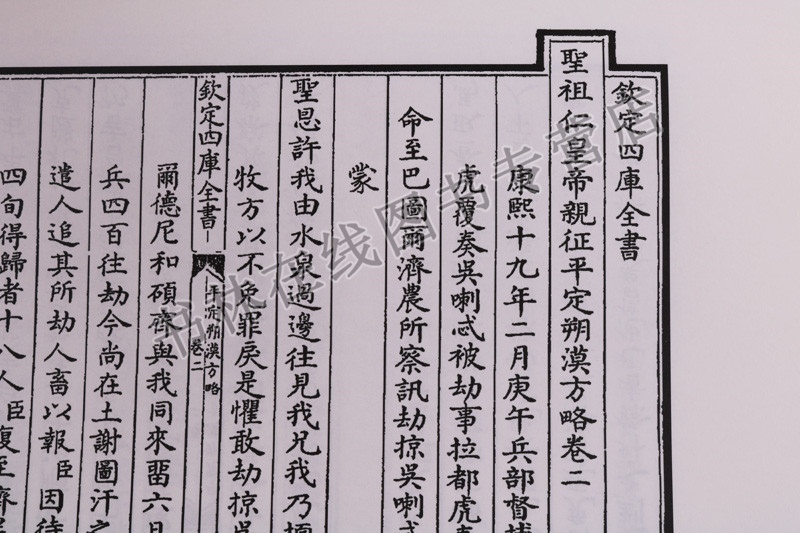 欽定四庫全書
聖祖仁皇帝親征平定朔漠方略卷二
康熙十九年二月庚午兵部督捕
虎覆奏吳喇忒被劫事拉都虎
命至巴圖爾濟農所察訊劫掠吳喇忒
蒙
聖恩許我由水泉過邊往見我兄我乃
牧方以不免罪戾是懼敢劫掠吳
欽定四庫全書
平定朔漠方略
卷二
爾德尼和碩齊與我同來留六日
兵四百往劫今尚在土謝圖汗之
遣人追其所劫人畜以報臣因待
四旬得歸者十八人臣復至齊
书林在线图书专营店